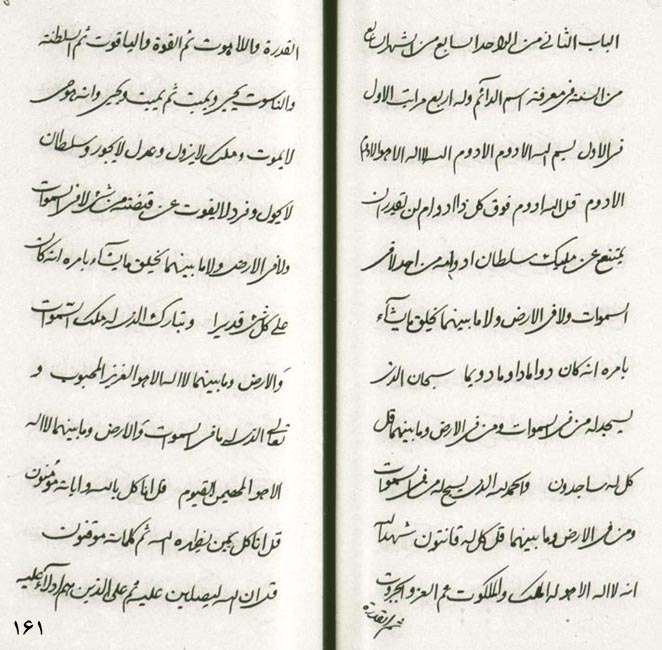 الباب الثاني من الواحد السابع من الشهر السابع
من السنة في معرفة اسم الدائم وله اربع مراتب الاول
في الاول بسم الله الادوم الادوم الله لا اله الا هو الادوم
الادوم قل الله ادوم فوق كل ذا ادوام لن يقدر ان
يمتنع عن مليك سلطان ادوامه من احد لا في
السموات ولا في الارض ولا ما بينهما يخلق ما يشآء
بامره انه كان دواما داوما دويما سبحان الذي
يسجد له من في السموات ومن في الارض وما بينهما قل
كل له ساجدون والحمد لله الذي يسبح له من في السموات
ومن في الارض وما بينهما قل كل له قانتون شهد الله
انه لا اله الا هو له الملك والملكوت ثم العز والجبروت
ثم القدرة
القدرة واللاهوت ثم القوة والياقوت ثم السلطنة
والناسوت يحيي ويميت ثم يميت ويحيي وانه هو حي
لا يموت وملك لا يزول وعدل لا يجور وسلطان
لا يحول وفرد لا يفوت عن قبضته من شئ لا في السموات
ولا في الارض ولا ما بينهما يخلق ما يشآء بامره انه كان
على كل شئ قديرا وتبارك الذي له ملك السموات
والارض وما بينهما لا اله الا هو العزيز المحبوب و
تعالى الذي له ما في السموات والارض وما بينهما لا اله
الا هو المهيمن القيوم قل انا كل بالله واياته مؤمنون
قل انا كل بمن يظهره الله ثم كلماته موقنون
قل ان الله ليصلين عليه ثم على الذين هم ادلاء عليه
۱۶۱